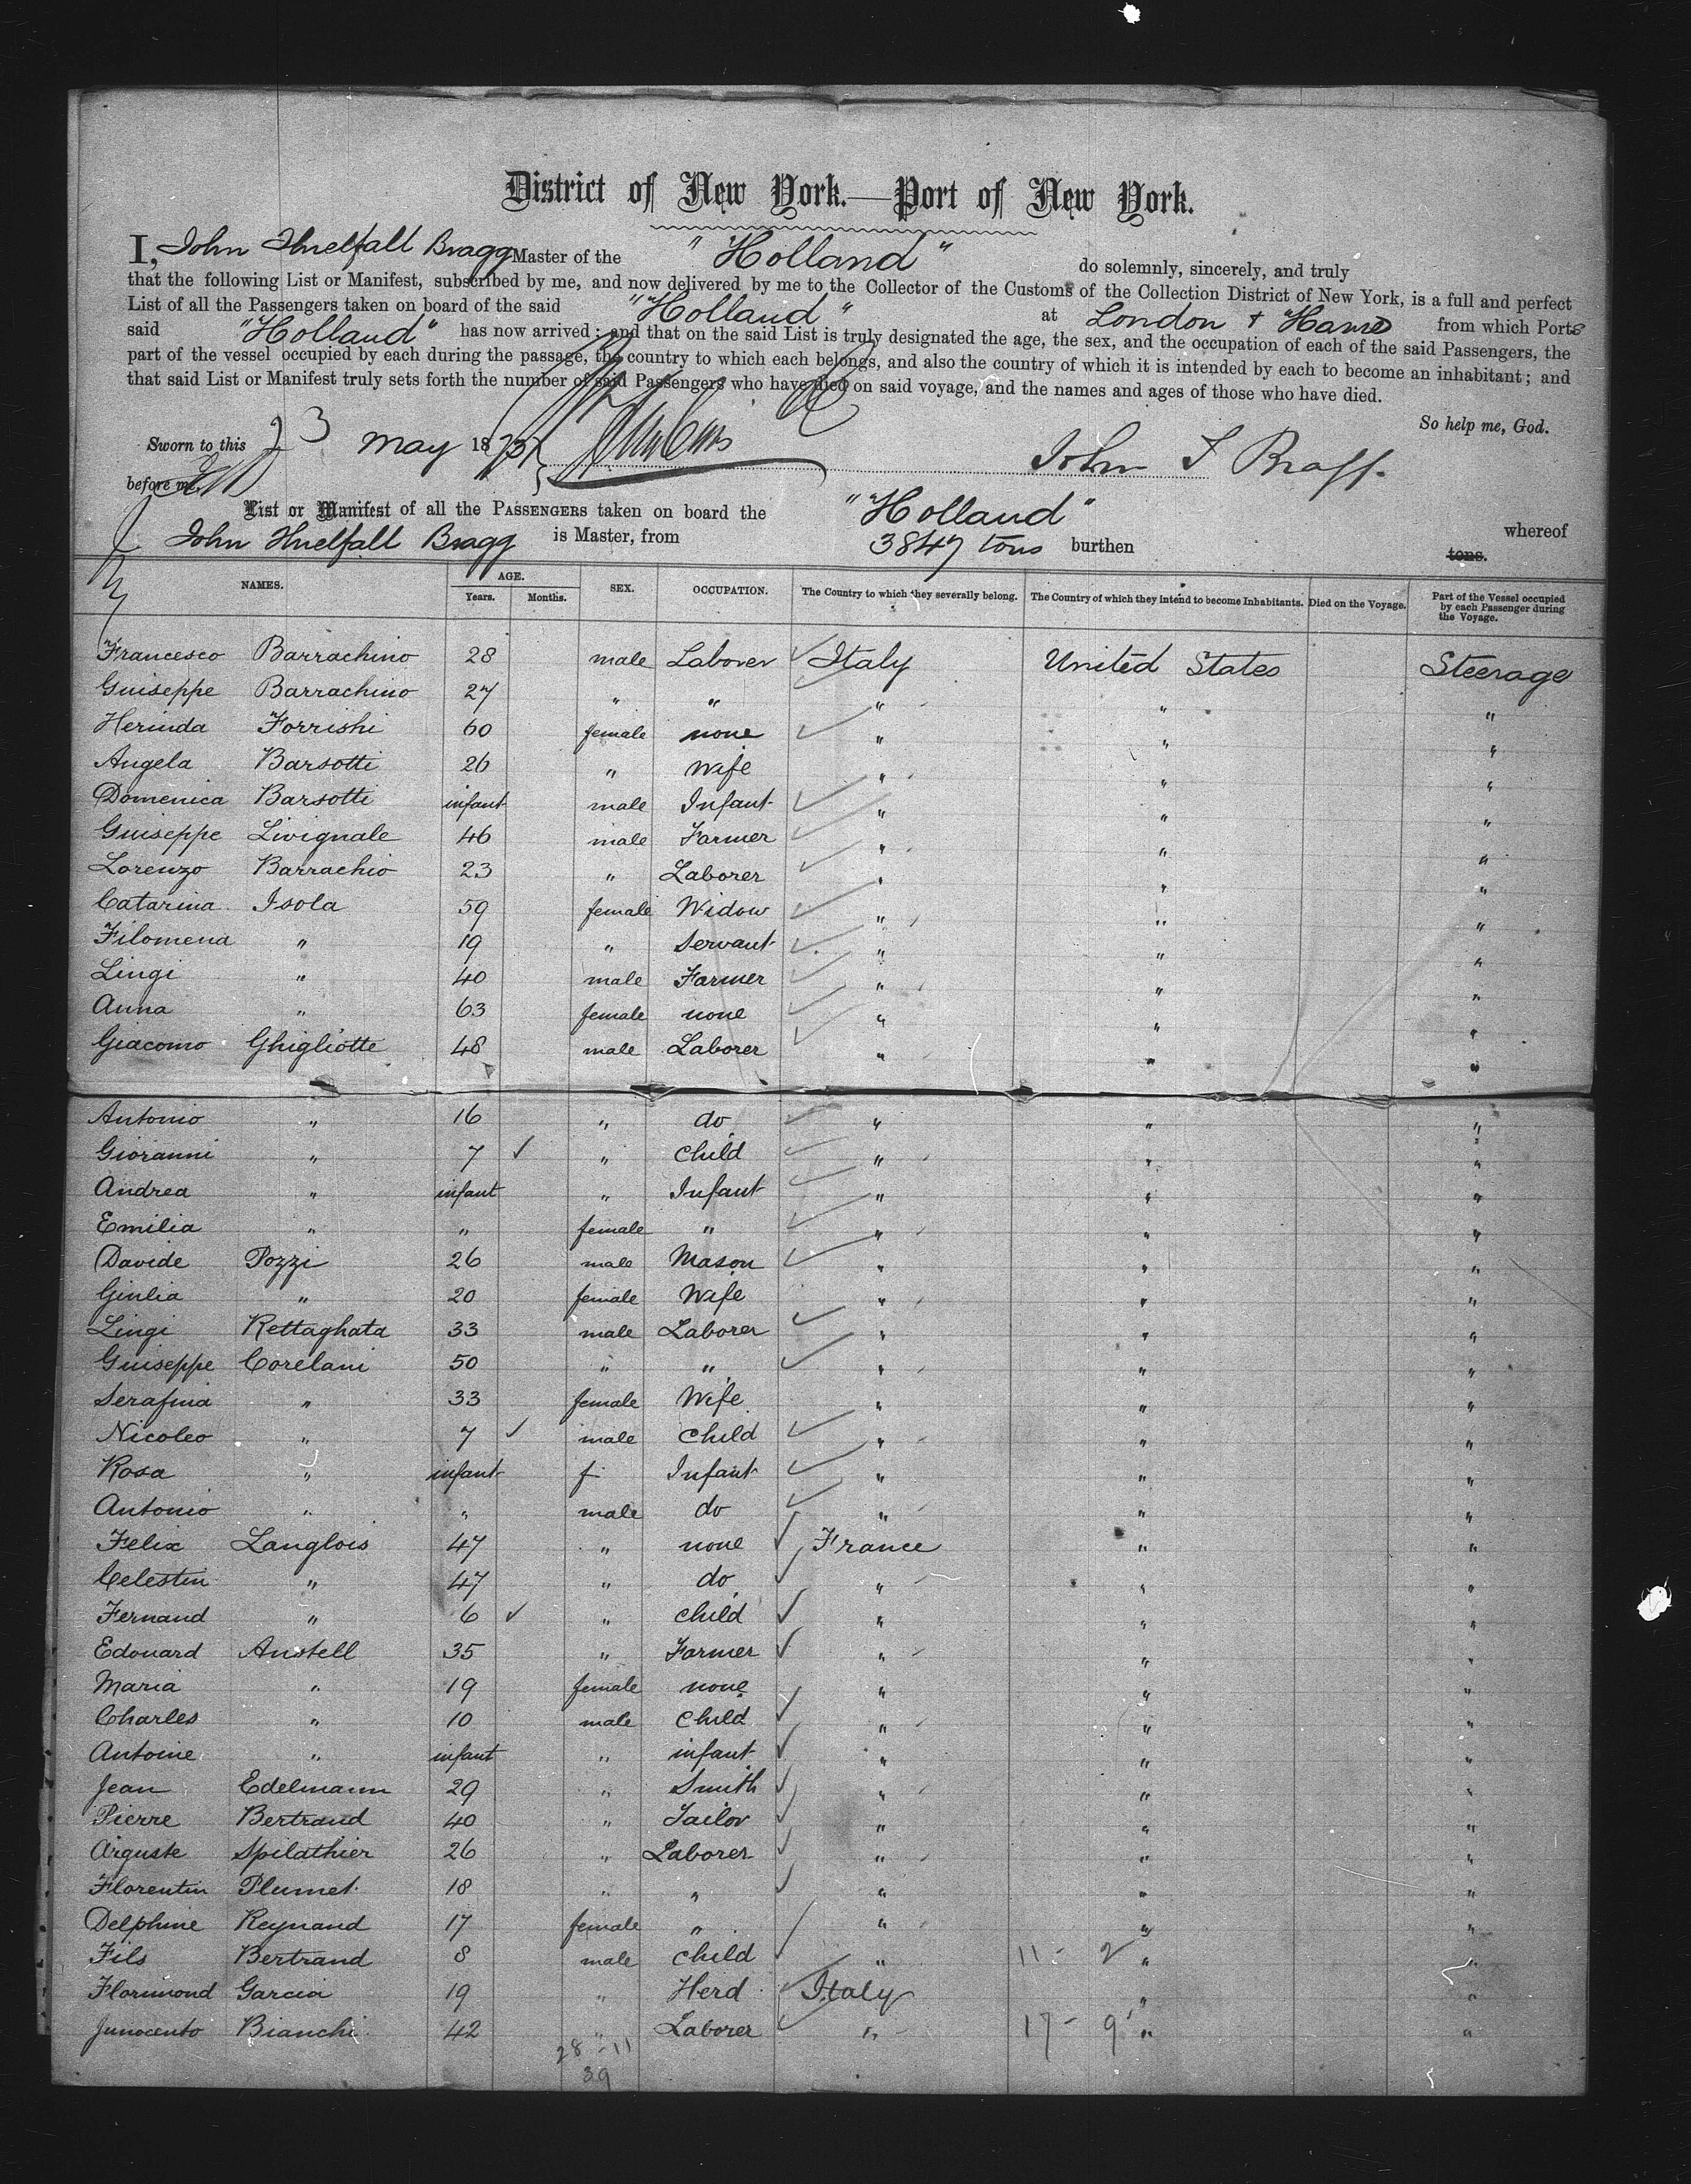 District of New York.—Port of New York.
I, John Threlfall Bragg Master of the "Holland" do solemnly, sincerely, and truly
that the following List or Manifest, subscribed by me, and now delivered by me to the Collector of the Customs of the Collection District of New York, is a full and perfect
List of all the Passengers taken on board of the said "Holland" at London + Havre from which Ports
said "Holland" has now arrived; and that on the said List is truly designated the age, the sex, and the occupation of each of the said Passengers, the
part of the vessel occupied by each during the passage, the country to which each belongs, and also the country of which it is intended by each to become an inhabitant; and
that said List or Manifest truly sets forth the number of said Passengers who have died on said voyage, and the names and ages of those who have died.
So help me, God.
Sworn to this 23 May 18 John T Bragg
before me,
List or Manifest of all the PASSENGERS taken on board the "Holland" whereof
John Threlfall Bragg is Master, from 3847 tons burthen tons.
NAMES. AGE. Years. Months. SEX. OCCUPATION. The Country to which they severally belong. The Country of which they intend to become Inhabitants. Died on the Voyage. Part of the Vessel occupied by each Passenger during the Voyage.
Francesco Barrachino 28 male Laborer Italy United States Steerage
Guiseppe Barrachino 27 " " " " "
Herinda Forrishi 60 female none " " "
Angela Barsotti 26 " Wife " " "
Domenica Barsotti infant male Infant " " "
Guiseppe Livignale 46 male Farmer " " "
Lorenzo Barrachio 23 " Laborer " " "
Catarina Isola 59 female Widow " " "
Filomena " 19 " Servant " " "
Lingi " 40 male Farmer " " "
Anna " 63 female none " " "
Giacomo Ghigliotte 48 male Laborer " " "
Antonio " 16 " do " " "
Gioranni " 7 " child " " "
Andrea " infant " Infant " " "
Emilia " " female " " " "
Davide Pozzi 26 male Mason " " "
Giulia " 20 female Wife " " "
Lingi Rettaghata 33 male Laborer " " "
Guiseppe Corelani 50 " " " " "
Serafina " 33 female Wife " " "
Nicoleo " 7 male child " " "
Rosa " infant f Infant " " "
Antonio " " male do " " "
Felix Langlois 47 " none France " "
Celestin " 47 " do " " "
Fernand " 6 " child " " "
Edouard Anstell 35 " Farmer " " "
Maria " 19 female none " " "
Charles " 10 male child " " "
Antoine " infant " infant " " "
Jean Edelmann 29 " Smith " " "
Pierre Bertrand 40 " Tailor " " "
Auguste Spilathier 26 " Laborer " " "
Florentin Plumet 18 " " " " "
Delphine Reynand 17 female " " " "
Fils Bertrand 8 male child " 11 - 2 " "
Florimond Garcia 19 " Herd Italy " "
Innocento Bianchi 42 " Laborer " 17 - 9 " "
28 - 11
39